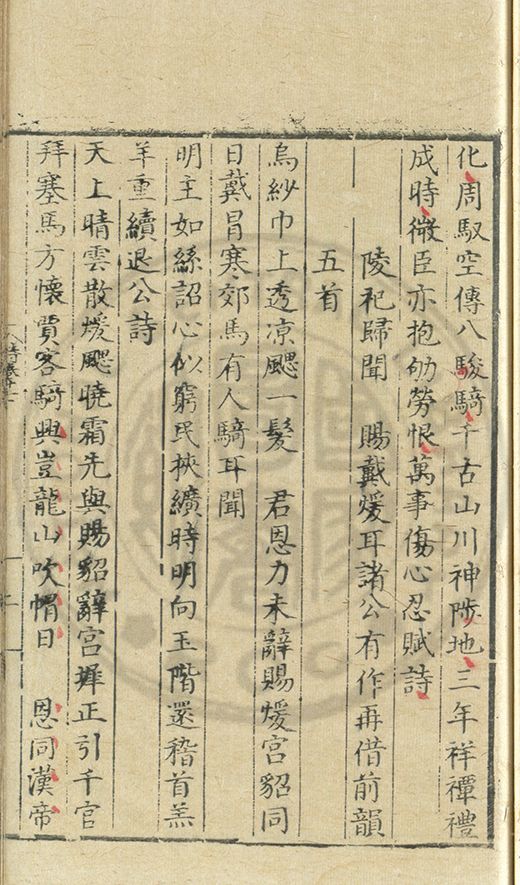 化周馭空傳八駿騎千古山川神陟地三年祥禫禮
成時微臣亦抱劬勞恨萬事傷心忍賦詩
陵祀歸聞　賜戴煖耳諸公有作再借前韻
五首
烏紗巾上透凉颸一髮　君恩力未辭賜煖宮貂同
日戴冒寒郊馬有人騎耳聞
明主如絲詔心似窮民挾纊時明向玉階還稽首羔
羊重續退公詩
天上晴雲散煖颸曉霜先與賜貂辭宮墀正引千官
拜塞馬方懷賈客騎興豈龍山吹帽日　恩同漢帝